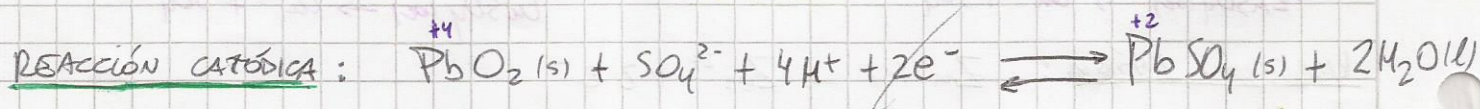 REACCIÓN CATÓDICA: +4 PbO₂(s) + SO₄²⁻ + 4H⁺ + 2e⁻ ⇌ +2 PbSO₄(s) + 2H₂O(l)